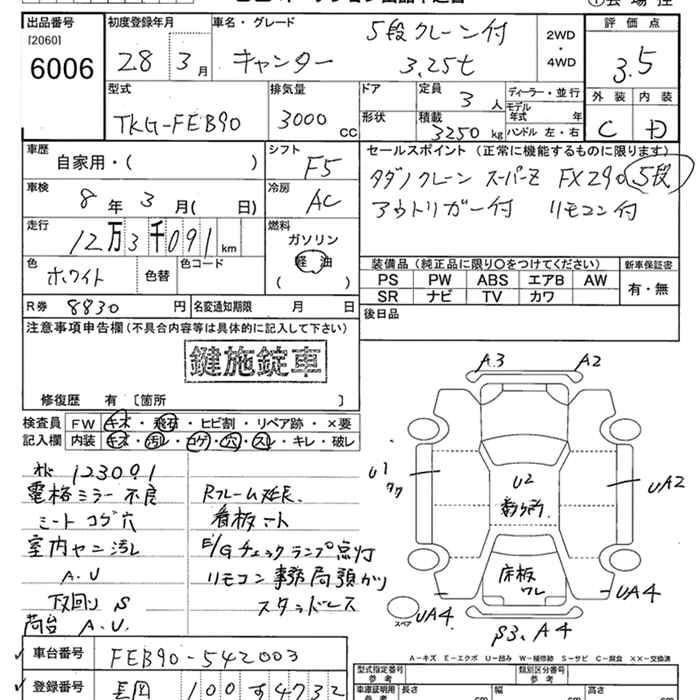 出品番号 初度登録年月 車名・グレード 5段クレーン付 2WD・4WD 評価点
[2060]
6006 28 3月 キャンター 3.25t 3.5
型式 排気量 ドア 定員 3人 ディーラー・並行 外装 内装
TKG-FEB90 3000cc 形状 積載 3250kg モデル年式 年 ハンドル 左・右 C D
車歴 自家用・( ) シフト F5 セールスポイント (正常に機能するものに限ります)
車検 8年3月( 日) 冷房 AC タダノクレーン スーパーZ FX290 5段
アウトリガー付 リモコン付
走行 12万3千091km 燃料 ガソリン 軽油 ( )
色 ホワイト 色替 色コード
装備品 (純正品に限り○をつけてください) 新車保証書
PS PW ABS エアB AW 有・無
SR ナビ TV カワ
R券 8830円 名変通知期限 月 日 後日品
注意事項申告欄(不具合内容等は具体的に記入して下さい)
鍵施錠車
修復歴 有 [箇所 ]
検査員記入欄 FW キズ・飛石・ヒビ割・リペア跡・×要
内装 キズ・汚レ・コゲ・穴・スレ・キレ・破レ
123091
電格ミラー不良
シートコゲ穴
室内ヤニ汚レ
A.U
下回りS
荷台 A.U.
Rフレーム延長.
看板マート
E/Gチェックランプ点灯
リモコン事務局預かり
スタッドレス
A3 A2
U1
U2
UA2
床板ワレ
UA4
スペア UA4
β3、A4
A-キズ E-エクボ U-凹み W-補修跡 S-サビ C-腐食 ××-交換済
車台番号 FEB90-542003
型式指定番号 参考 類別区分番号 参考
登録番号 長岡 100す4732
車庫証明用 参考 長さ cm 幅 cm 高さ cm